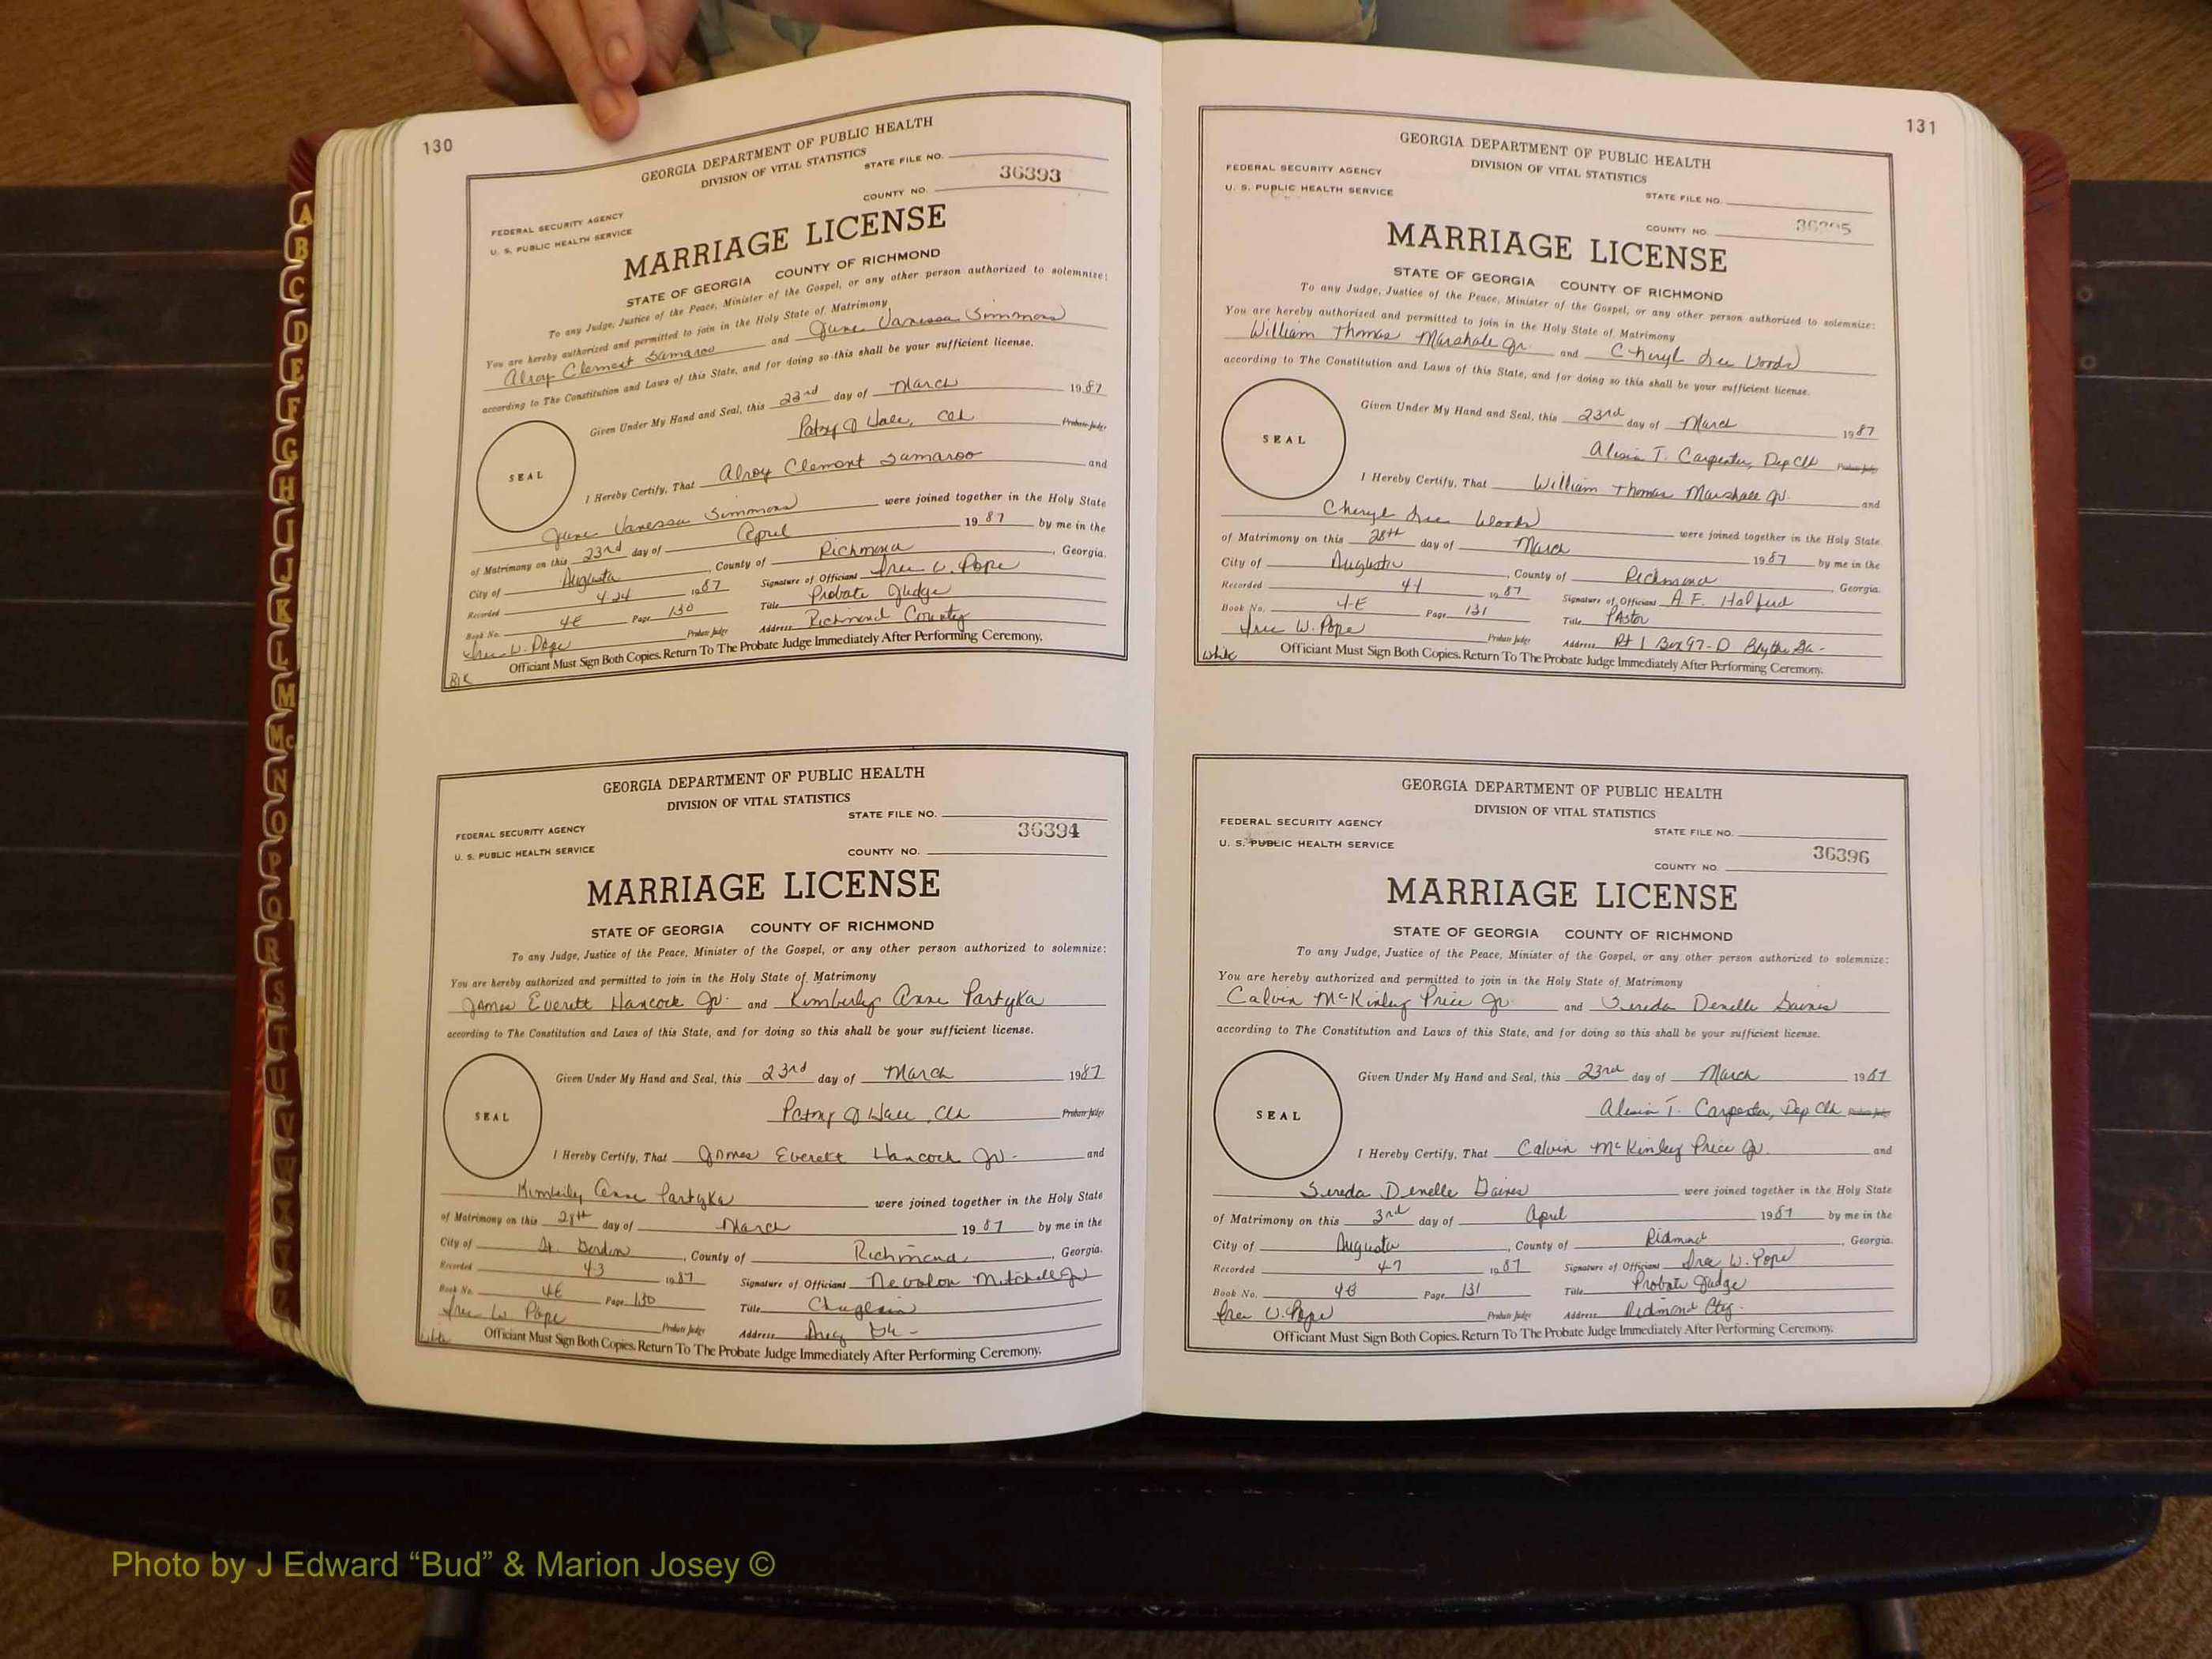 130
GEORGIA DEPARTMENT OF PUBLIC HEALTH
DIVISION OF VITAL STATISTICS
STATE FILE NO.
36393
COUNTY NO.
FEDERAL SECURITY AGENCY
U. S. PUBLIC HEALTH SERVICE
MARRIAGE LICENSE
STATE OF GEORGIA COUNTY OF RICHMOND
To any Judge, Justice of the Peace, Minister of the Gospel, or any other person authorized to solemnize:
You are hereby authorized and permitted to join in the Holy State of Matrimony
Alroy Clement Samaroo and June Vanessa Simmons
according to The Constitution and Laws of this State, and for doing so this shall be your sufficient license.
Given Under My Hand and Seal, this 23rd day of March 1987
Probate Judge
SEAL
I Hereby Certify, That Alroy Clement Samaroo and
June Vanessa Simmons were joined together in the Holy State
of Matrimony on this 23rd day of April 1987 by me in the
City of Augusta, County of Richmond, Georgia.
Recorded 4-24 1987 Signature of Officiant W. Pope
Book No. 4E Page 130 Title Probate Judge
W. Pope Probate Judge Address Richmond County
Officiant Must Sign Both Copies. Return To The Probate Judge Immediately After Performing Ceremony.
Blk
GEORGIA DEPARTMENT OF PUBLIC HEALTH
DIVISION OF VITAL STATISTICS
STATE FILE NO.
36394
FEDERAL SECURITY AGENCY
U. S. PUBLIC HEALTH SERVICE
COUNTY NO.
MARRIAGE LICENSE
STATE OF GEORGIA COUNTY OF RICHMOND
To any Judge, Justice of the Peace, Minister of the Gospel, or any other person authorized to solemnize:
You are hereby authorized and permitted to join in the Holy State of Matrimony
James Everett Hancock Jr. and Kimberly Anne Partyka
according to The Constitution and Laws of this State, and for doing so this shall be your sufficient license.
Given Under My Hand and Seal, this 23rd day of March 1987
Probate Judge
SEAL
I Hereby Certify, That James Everett Hancock Jr. and
Kimberly Anne Partyka were joined together in the Holy State
of Matrimony on this 28th day of March 1987 by me in the
City of Ft. Gordon, County of Richmond, Georgia.
Recorded 4-3 1987 Signature of Officiant Mitchell Jr
Book No. 4E Page 130 Title Chaplain
W. Pope Probate Judge Address Aug Ga -
Officiant Must Sign Both Copies. Return To The Probate Judge Immediately After Performing Ceremony.
White
131
GEORGIA DEPARTMENT OF PUBLIC HEALTH
DIVISION OF VITAL STATISTICS
FEDERAL SECURITY AGENCY
U. S. PUBLIC HEALTH SERVICE
STATE FILE NO.
36395
COUNTY NO.
MARRIAGE LICENSE
STATE OF GEORGIA COUNTY OF RICHMOND
To any Judge, Justice of the Peace, Minister of the Gospel, or any other person authorized to solemnize:
You are hereby authorized and permitted to join in the Holy State of Matrimony
William Thomas Marshall Jr. and Cheryl Lee Woods
according to The Constitution and Laws of this State, and for doing so this shall be your sufficient license.
Given Under My Hand and Seal, this 23rd day of March 1987
Alesia T. Carpenter, Dep Clk Probate Judge
SEAL
I Hereby Certify, That William Thomas Marshall Jr. and
Cheryl Lee Woods were joined together in the Holy State
of Matrimony on this 28th day of March 1987 by me in the
City of Augusta, County of Richmond, Georgia.
Recorded 4-1 1987 Signature of Officiant A. F. Halford
Book No. 4-E Page 131 Title Pastor
W. Pope Probate Judge Address Rt 1 Box 97-D Blythe Ga -
Officiant Must Sign Both Copies. Return To The Probate Judge Immediately After Performing Ceremony.
White
GEORGIA DEPARTMENT OF PUBLIC HEALTH
DIVISION OF VITAL STATISTICS
FEDERAL SECURITY AGENCY
STATE FILE NO.
U. S. PUBLIC HEALTH SERVICE
36396
COUNTY NO.
MARRIAGE LICENSE
STATE OF GEORGIA COUNTY OF RICHMOND
To any Judge, Justice of the Peace, Minister of the Gospel, or any other person authorized to solemnize:
You are hereby authorized and permitted to join in the Holy State of Matrimony
Calvin McKinley Price Jr. and Sereda Denelle Gaines
according to The Constitution and Laws of this State, and for doing so this shall be your sufficient license.
Given Under My Hand and Seal, this 23rd day of March 1987
Alesia T. Carpenter, Dep Clk Probate Judge
SEAL
I Hereby Certify, That Calvin McKinley Price Jr. and
Sereda Denelle Gaines were joined together in the Holy State
of Matrimony on this 3rd day of April 1987 by me in the
City of Augusta, County of Richmond, Georgia.
Recorded 4-7 1987 Signature of Officiant W. Pope
Book No. 4E Page 131 Title Probate Judge
W. Pope Probate Judge Address Richmond Cty.
Officiant Must Sign Both Copies. Return To The Probate Judge Immediately After Performing Ceremony.
A
B
C
D
E
F
G
H
I
J
K
L
M
Mc
N
O
P
Q
R
S
T
U
V
W
X
Y
Z
Photo by J Edward “Bud” & Marion Josey ©